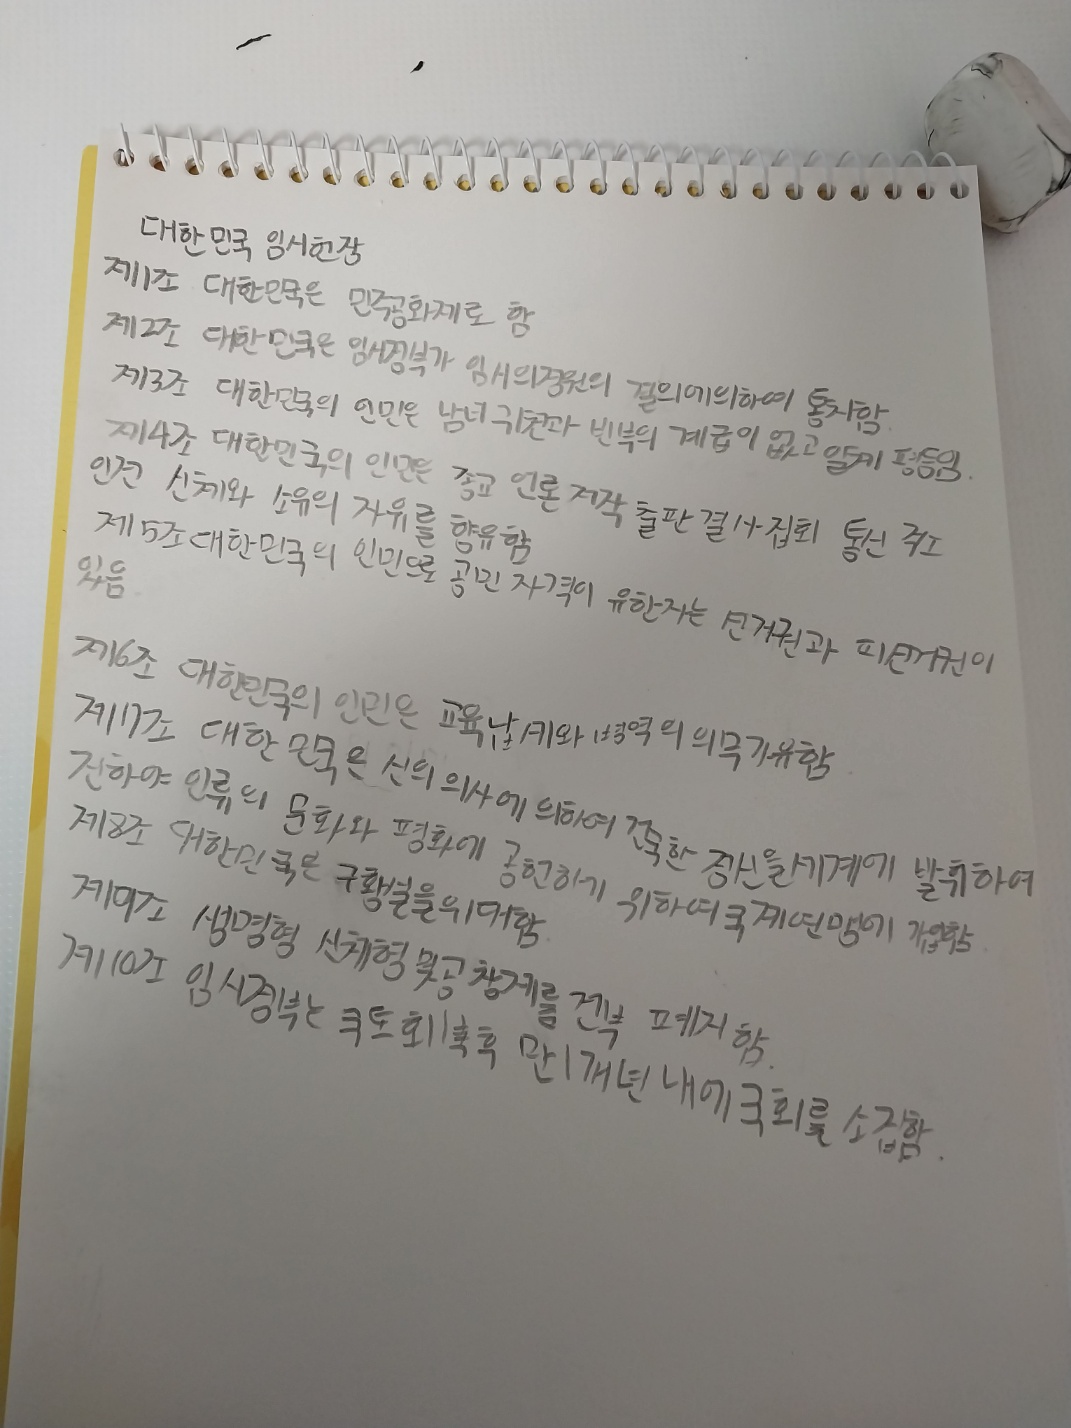 대한민국 임시헌장
제1조 대한민국은 민주공화제로 함
제2조 대한민국은 임시정부가 임시의정원의 결의에의하여 통치함.
제3조 대한민국의 인민은 남녀귀천과 빈부의 계급이 없고 일체 평등임.
제4조 대한민국의 인민은 종교 언론 저작 출판 결사 집회 통신 주소
인전 신체와 소유의 자유를 향유함
제5조 대한민국의 인민으로 공민 자격이 유한자는 선거권과 피선거권이
있음.
제6조 대한민국의 인민은 교육 납세와 병역의 의무가유함
제7조 대한민국은 신의 의사에 의하여 건국한 정신을세계에 발휘하여
진하야 인류의 문화와 평화에 공헌하기 위하여국제연맹에 가입함.
제8조 대한민국은 구황실을우대함.
제9조 생명형 신체형 및공창제를 전부 폐지함.
제10조 임시정부는 국토회복후 만1개년 내에국회를 소집함.